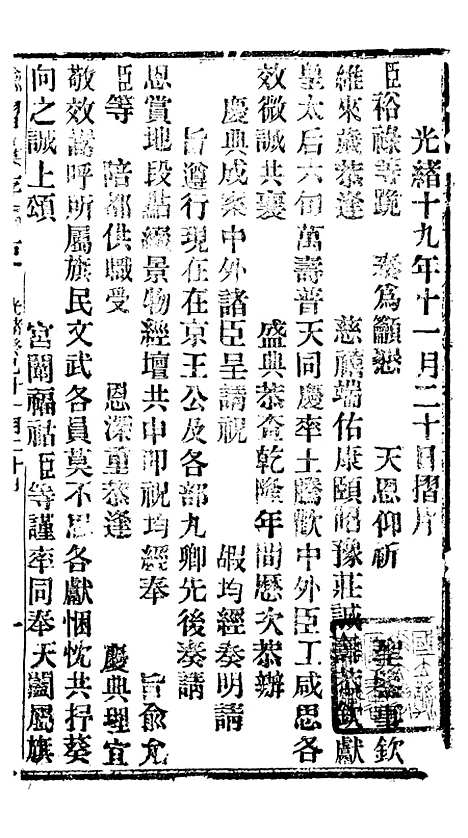 光緒十九年十一月二十日摺片
臣裕祿等跪 奏爲籲懇 天恩仰祈 聖鑒事欽
維來歲恭逢 慈禧端佑康頤昭豫莊誠壽恭欽獻
皇太后六旬萬壽普天同慶率土騰歡中外臣工咸思各
效微誠共襄 盛典恭查乾隆年間歷次恭辦
慶典成案中外諸臣呈請祝 嘏均經奏明請
旨遵行現在在京王公及各部九卿先後奏請
恩賞地段點綴景物經壇共申叩祝均經奉 旨俞允
臣等 陪都供職受 恩深重恭逢 慶典理宜
敬效嵩呼所屬旗民文武各員莫不思各獻悃忱共抒葵
向之誠上頌 宮闈福祜臣等謹率同奉天闔屬旗
光緒癸巳十一月二十日 一